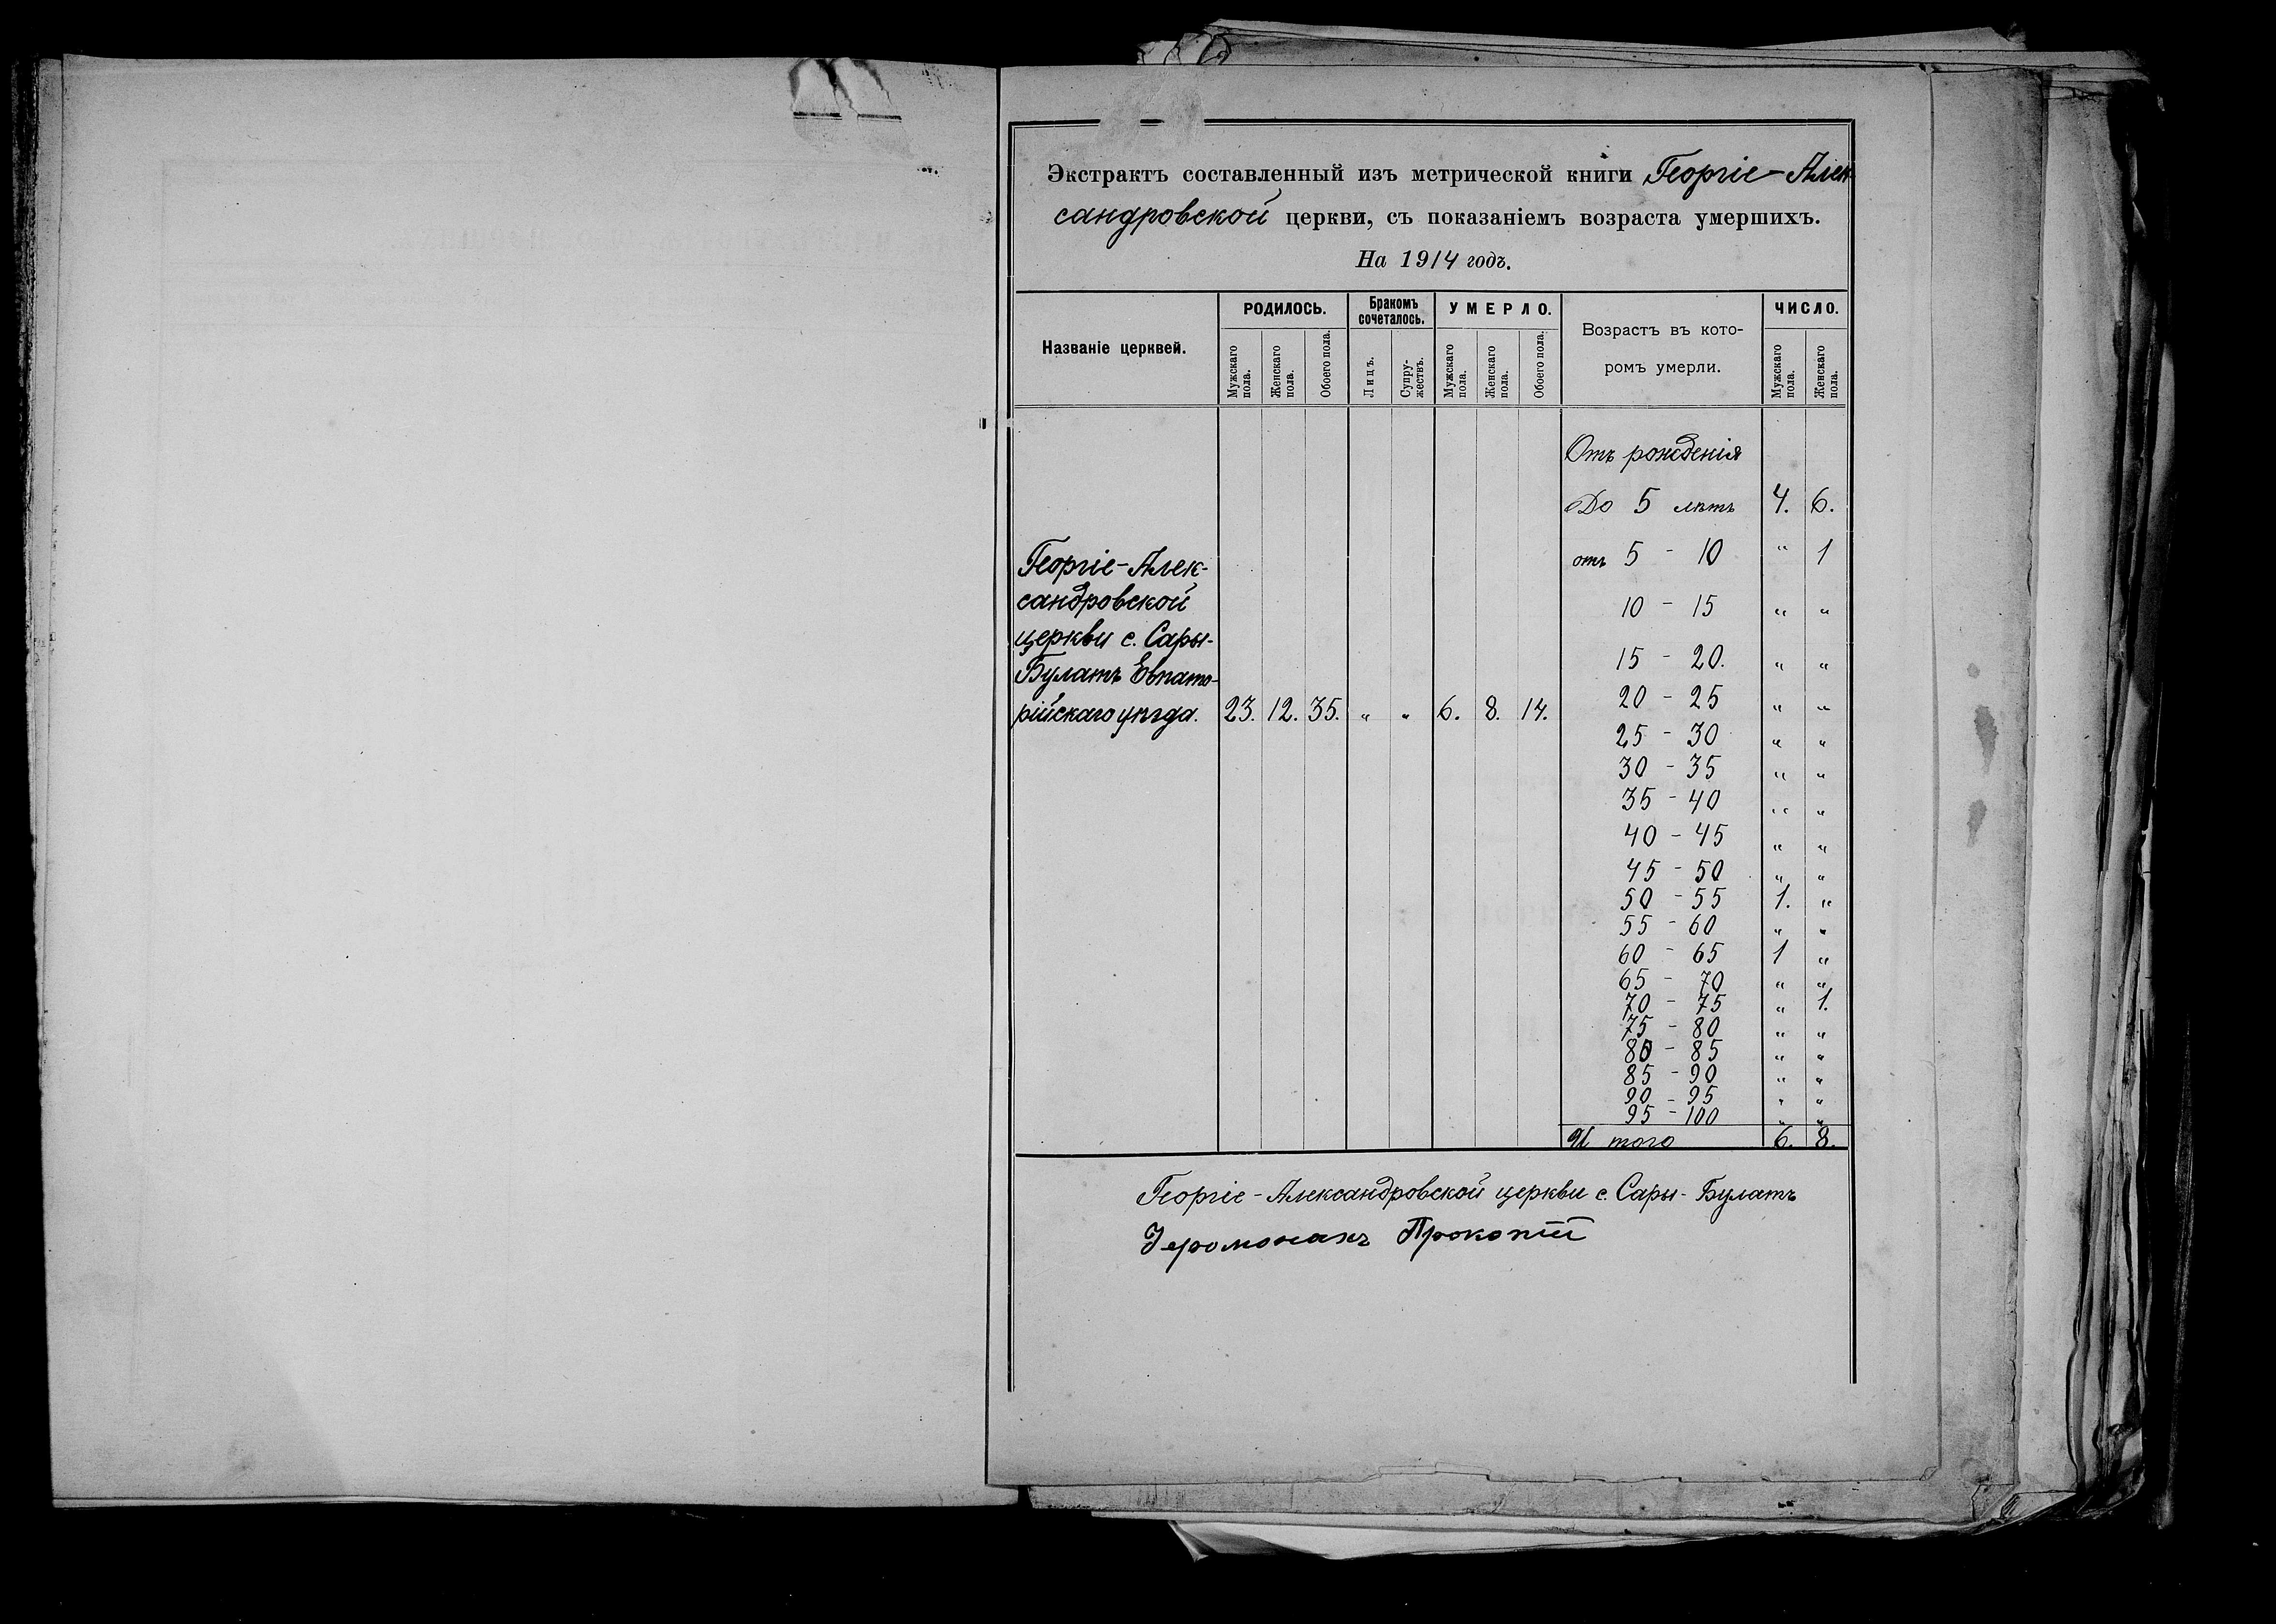 Экстрактъ составленный изъ метрической книги Георгіе-Алек
сандровской церкви, съ показаніемъ возраста умершихъ.
На 1914 годъ.
Названіе церквей.
РОДИЛОСЬ.
Мужскаго пола.
Женскаго пола.
Обоего пола.
Бракомъ сочеталось.
Лицъ.
Супру-жествъ.
УМЕРЛО.
Мужскаго пола.
Женскаго пола.
Обоего пола.
Возрастъ въ кото-
ромъ умерли.
ЧИСЛО.
Мужскаго пола.
Женскаго пола.
Георгіе-Алек-
сандровской
церкви с. Сары-
Булатъ Евпато-
рійскаго уѣзда. 23. 12. 35. „ „ 6. 8. 14.
Отъ рожденія
До 5 лѣтъ 4. 6.
отъ 5 - 10 „ 1
10 - 15 „ „
15 - 20. „ „
20 - 25 „ „
25 - 30 „ „
30 - 35 „ „
35 - 40 „ „
40 - 45 „ „
45 - 50 „ „
50 - 55 1. „
55 - 60 „ „
60 - 65 1 „
65 - 70 „ „
70 - 75 „ 1.
75 - 80 „ „
80 - 85 „ „
85 - 90 „ „
90 - 95 „ „
95 - 100 „ „
И того 6. 8.
Георгіе-Александровской церкви с. Сары-Булатъ
Іеромонахъ Прокопій